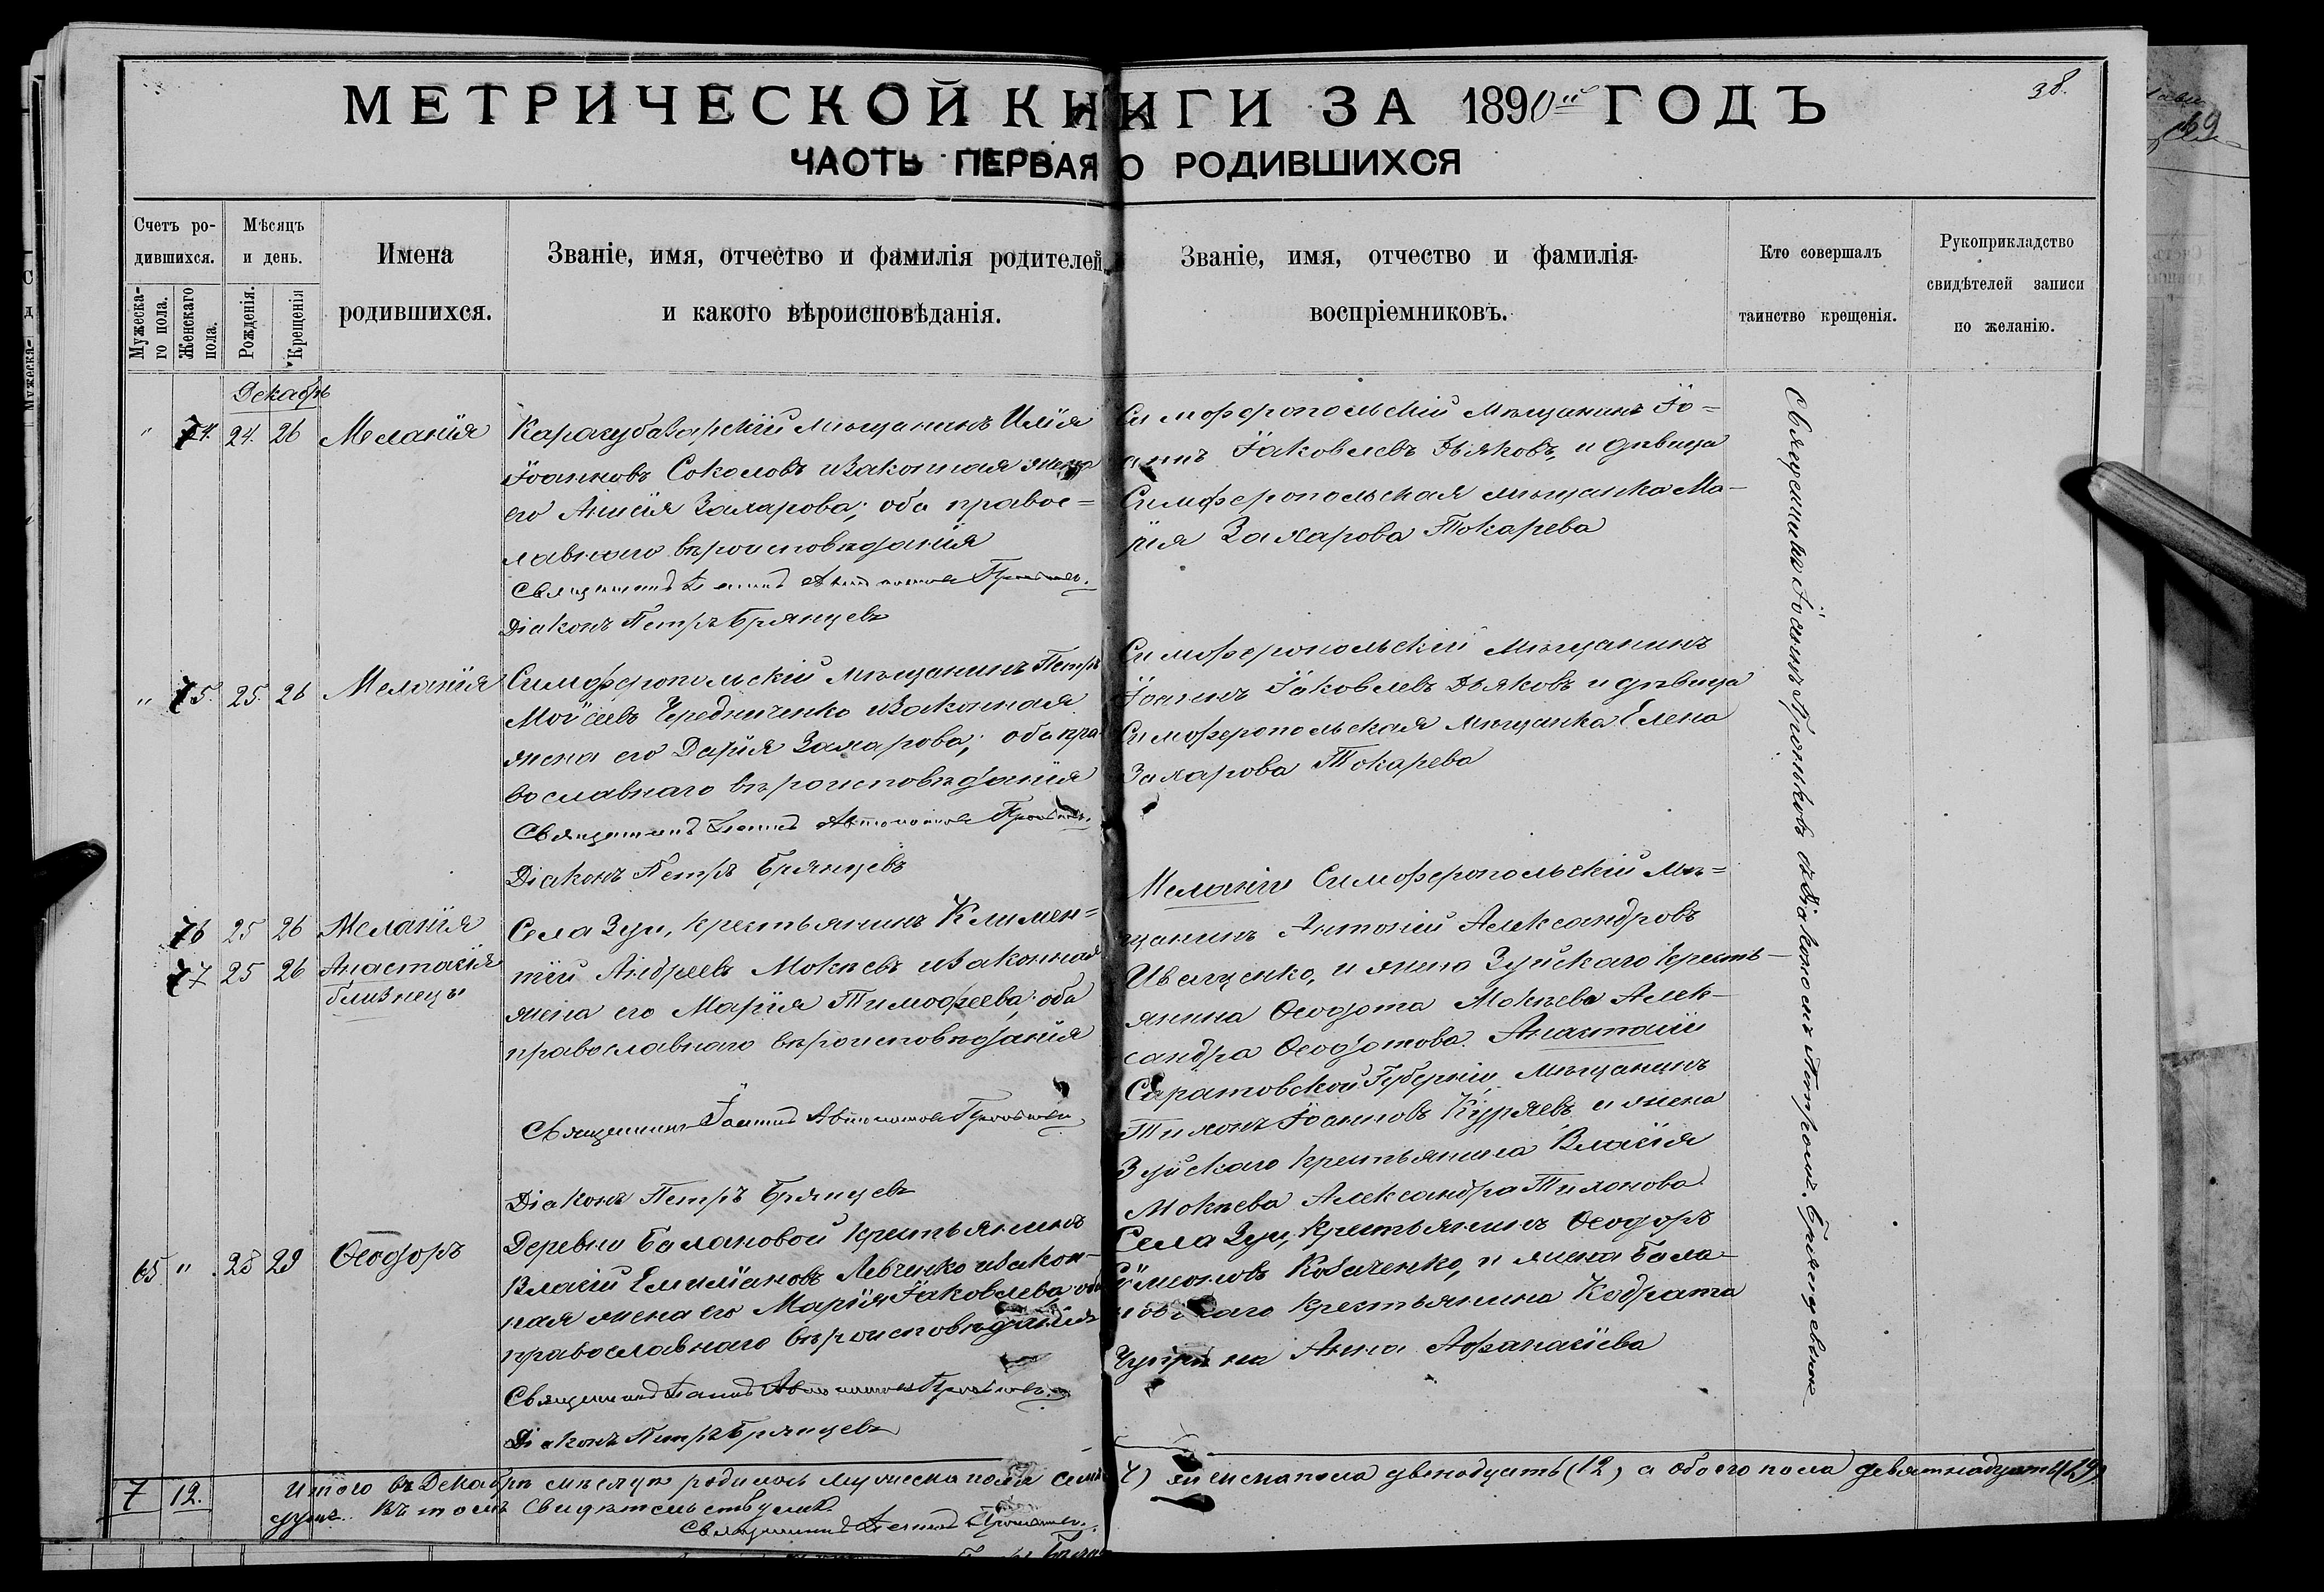 МЕТРИЧЕСКОЙ КНИГИ ЗА 1890й ГОДЪ
38.
ЧАСТЬ ПЕРВАЯ О РОДИВШИХСЯ
Счетъ ро-
дившихся.
Мужеска-
го пола.
Женскаго
пола.
Мѣсяцъ
и день.
Рожденія.
Крещенія
Имена
родившихся.
Званіе, имя, отчество и фамилія родителей
и какого вѣроисповѣданія.
Званіе, имя, отчество и фамилія
воспріемниковъ.
Кто совершалъ
таинство крещенія.
Рукоприкладство
свидѣтелей записи
по желанію.
Декабрь
" 74. 24. 26 Меланія
Карасубазарскій мѣщанинъ Илія
Іоанновъ Соколовъ и законная жена
его Анисія Захарова; оба правос=
лавнаго вѣроисповѣданія
Діаконъ Петръ Брянцевъ
Симферопольскій мѣщанинъ Іо=
аннъ Іаковлевъ Дьяковъ, и дѣвица
Симферопольская мѣщанка Ма-
рія Захарова Токарева
" 75. 25. 26 Меланія
Симферопольскій мѣщанинъ Петръ
Моисеевъ Чередниченко и законная
жена его Дарія Захарова; оба пра-
вославнаго вѣроисповѣданія
Діаконъ Петръ Брянцевъ
Симферопольскій мѣщанинъ
Іоаннъ Іаковлевъ Дьяковъ и дѣвица
Симферопольская мѣщанка Елена
Захарова Токарева
76 25 26 Меланія
77 25 26 Анастасія
близнецы
Села Зуи, крестьянинъ Климен=
тій Андреевъ Мокѣевъ и законная
жена его Марія Тимофеева; оба
православнаго вѣроисповѣданія
Священникъ Іоаннъ
Діаконъ Петръ Брянцевъ
Меланіи Симферопольскій мѣ=
щанинъ Антоній Александровъ
Иващенко, и жена Зуйскаго кресть-
янина Ѳеодота Мокѣева Алек-
сандра Ѳеодотова. Анастасіи
Саратовской Губерніи, мѣщанинъ
Тихонъ Іоанновъ Куряевъ и жена
Зуйскаго крестьянина Власія
Мокѣева Александра Тихонова.
65 " 28 29 Ѳеодоръ
Деревни Балановой крестьянинъ
Власій Емиліановъ Левченко и закон-
ная жена его Марія Іаковлева оба
православнаго вѣроисповѣданія
Діаконъ Петръ Брянцевъ
Села Зуи, крестьянинъ Ѳеодоръ
Симоновъ Коваченко, и жена Бала-
новскаго крестьянина Кодрата
Чуприна Анна Афанасіева
Священникъ Іоаннъ съ Діакономъ Петромъ Брянцевымъ
7 12.
Итого въ Декабрѣ мѣсяцѣ родилось мужеска пола семь
(7) женска пола двенадцать (12) а обоего пола девятнадцать (19)
душъ. Въ томъ свидѣтельствуемъ.